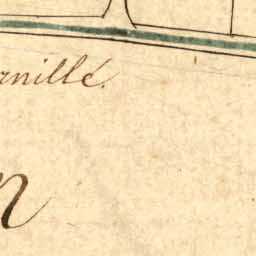 anillé.
n